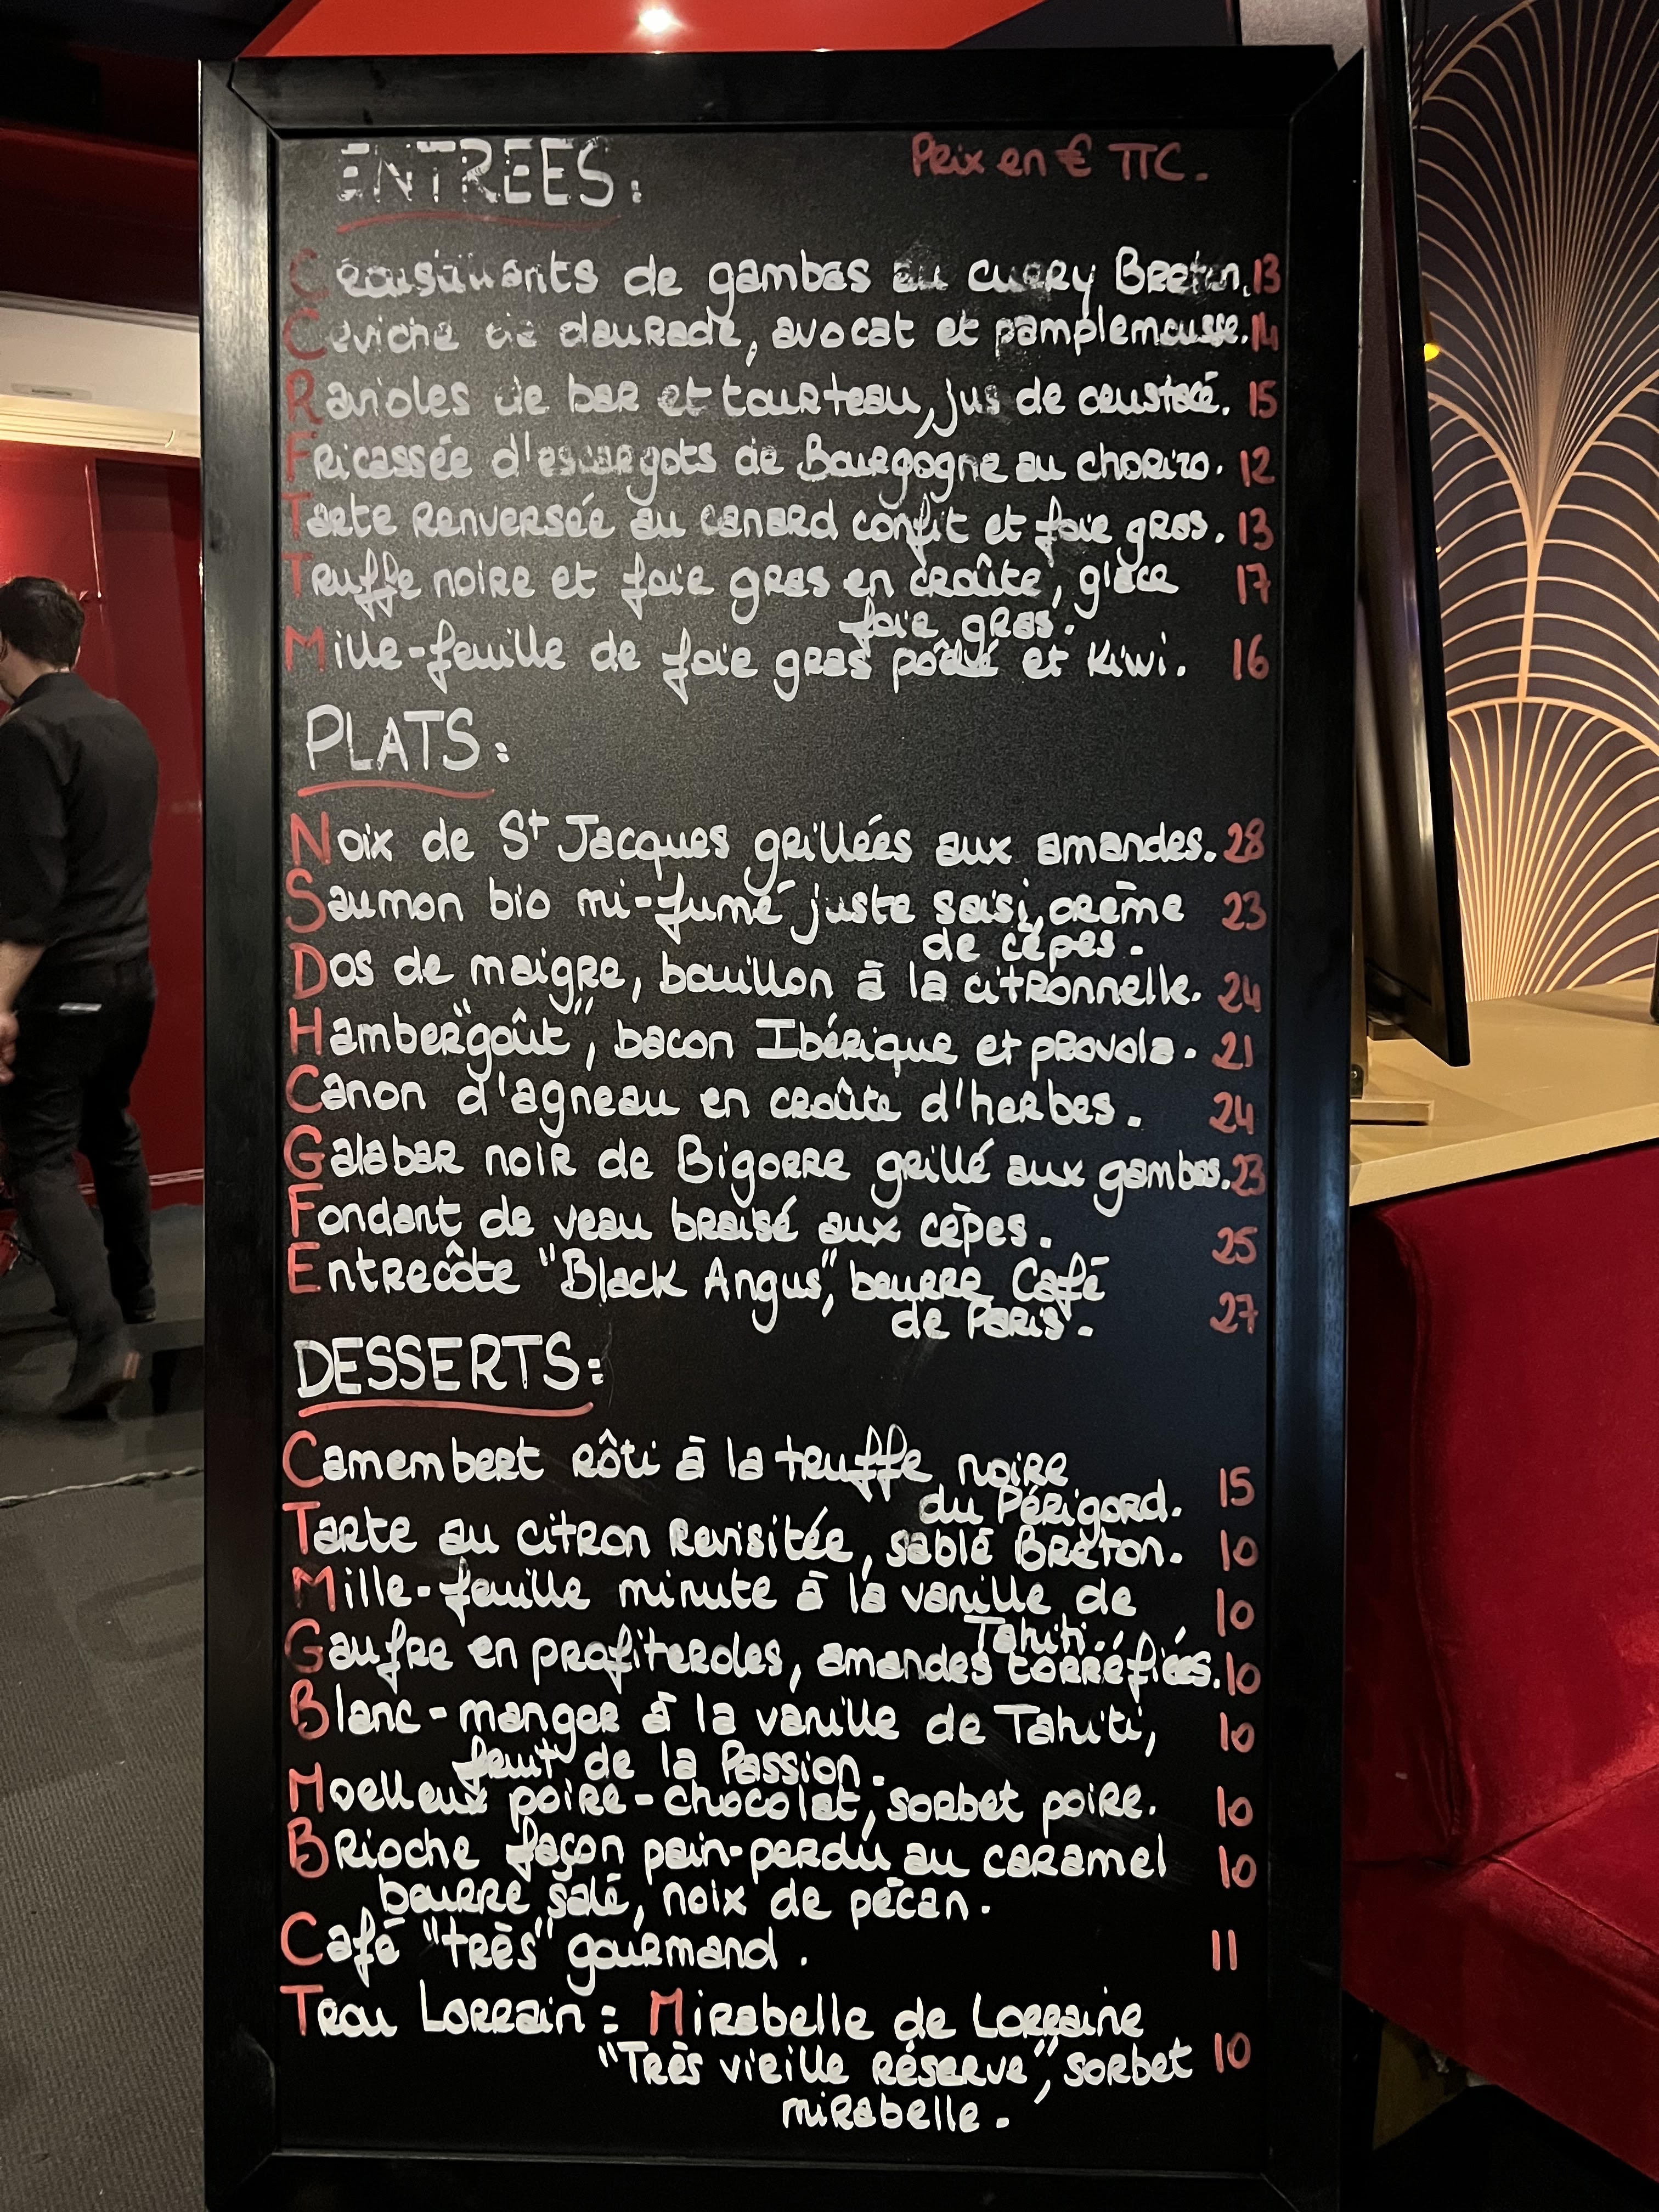 ENTREES:
Prix en € TTC.
Croustillants de gambas au curry Breton. 13
Ceviche de daurade, avocat et pamplemousse. 14
Ravioles de bar et tourteau, jus de crustacé. 15
Fricassée d'escargots de Bourgogne au chorizo. 12
Tarte renversée au canard confit et foie gras. 13
Truffe noire et foie gras en croûte, glace 17
foie gras.
Mille-feuille de foie gras poêlé et kiwi. 16
PLATS:
Noix de St Jacques grillées aux amandes. 28
Saumon bio mi-fumé juste saisi, crème 23
de cèpes.
Dos de maigre, bouillon à la citronnelle. 24
Hamber"goût", bacon Ibérique et provola. 21
Canon d'agneau en croûte d'herbes. 24
Galabar noir de Bigorre grillé aux gambas. 23
Fondant de veau braisé aux cèpes. 25
Entrecôte "Black Angus", beurre Café
de Paris. 27
DESSERTS:
Camembert rôti à la truffe noire 15
du Périgord.
Tarte au citron revisitée, sablé Breton. 10
Mille-feuille minute à la vanille de 10
Tahiti.
Gaufre en profiteroles, amandes torréfiées. 10
Blanc-manger à la vanille de Tahiti, 10
fruit de la Passion.
Moelleux poire-chocolat, sorbet poire. 10
Brioche façon pain-perdu au caramel 10
beurre salé, noix de pécan.
Café "très" gourmand. 11
Trou Lorrain : Mirabelle de Lorraine
"Très vieille réserve", sorbet 10
mirabelle.